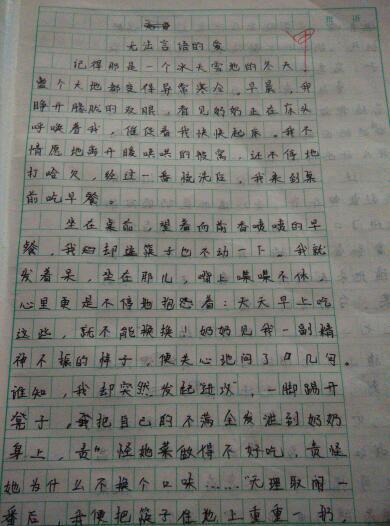 批语
无法言语的爱
记得那是一个冰天雪地的冬天，
整个大地都变得异常寒冷。早晨，我
睁开朦胧的双眼，看见奶奶正在床头
呼唤着我，催促着我快快起床。我不
情愿地离开暖烘烘的被窝，还不停地
打哈欠，经过一番梳洗后，我来到桌
前吃早餐。
坐在桌前，望着面前香喷喷的早
餐，我却连筷子也不动一下。我就
发着呆，坐在那儿，嘴上喋喋不休，
心里更是不停地抱怨着：天天早上吃
这些，就不能换换！奶奶见我一副精
神不振的样子，便关心地问了几句。
谁知，我却突然“发起进攻”，一脚踢开
凳子，我把自己的不满全发泄到奶奶
身上，责怪她菜做得不好吃，责怪
她为什么不换个口味……无理取闹一
番后，我便把筷子往地上重重一扔